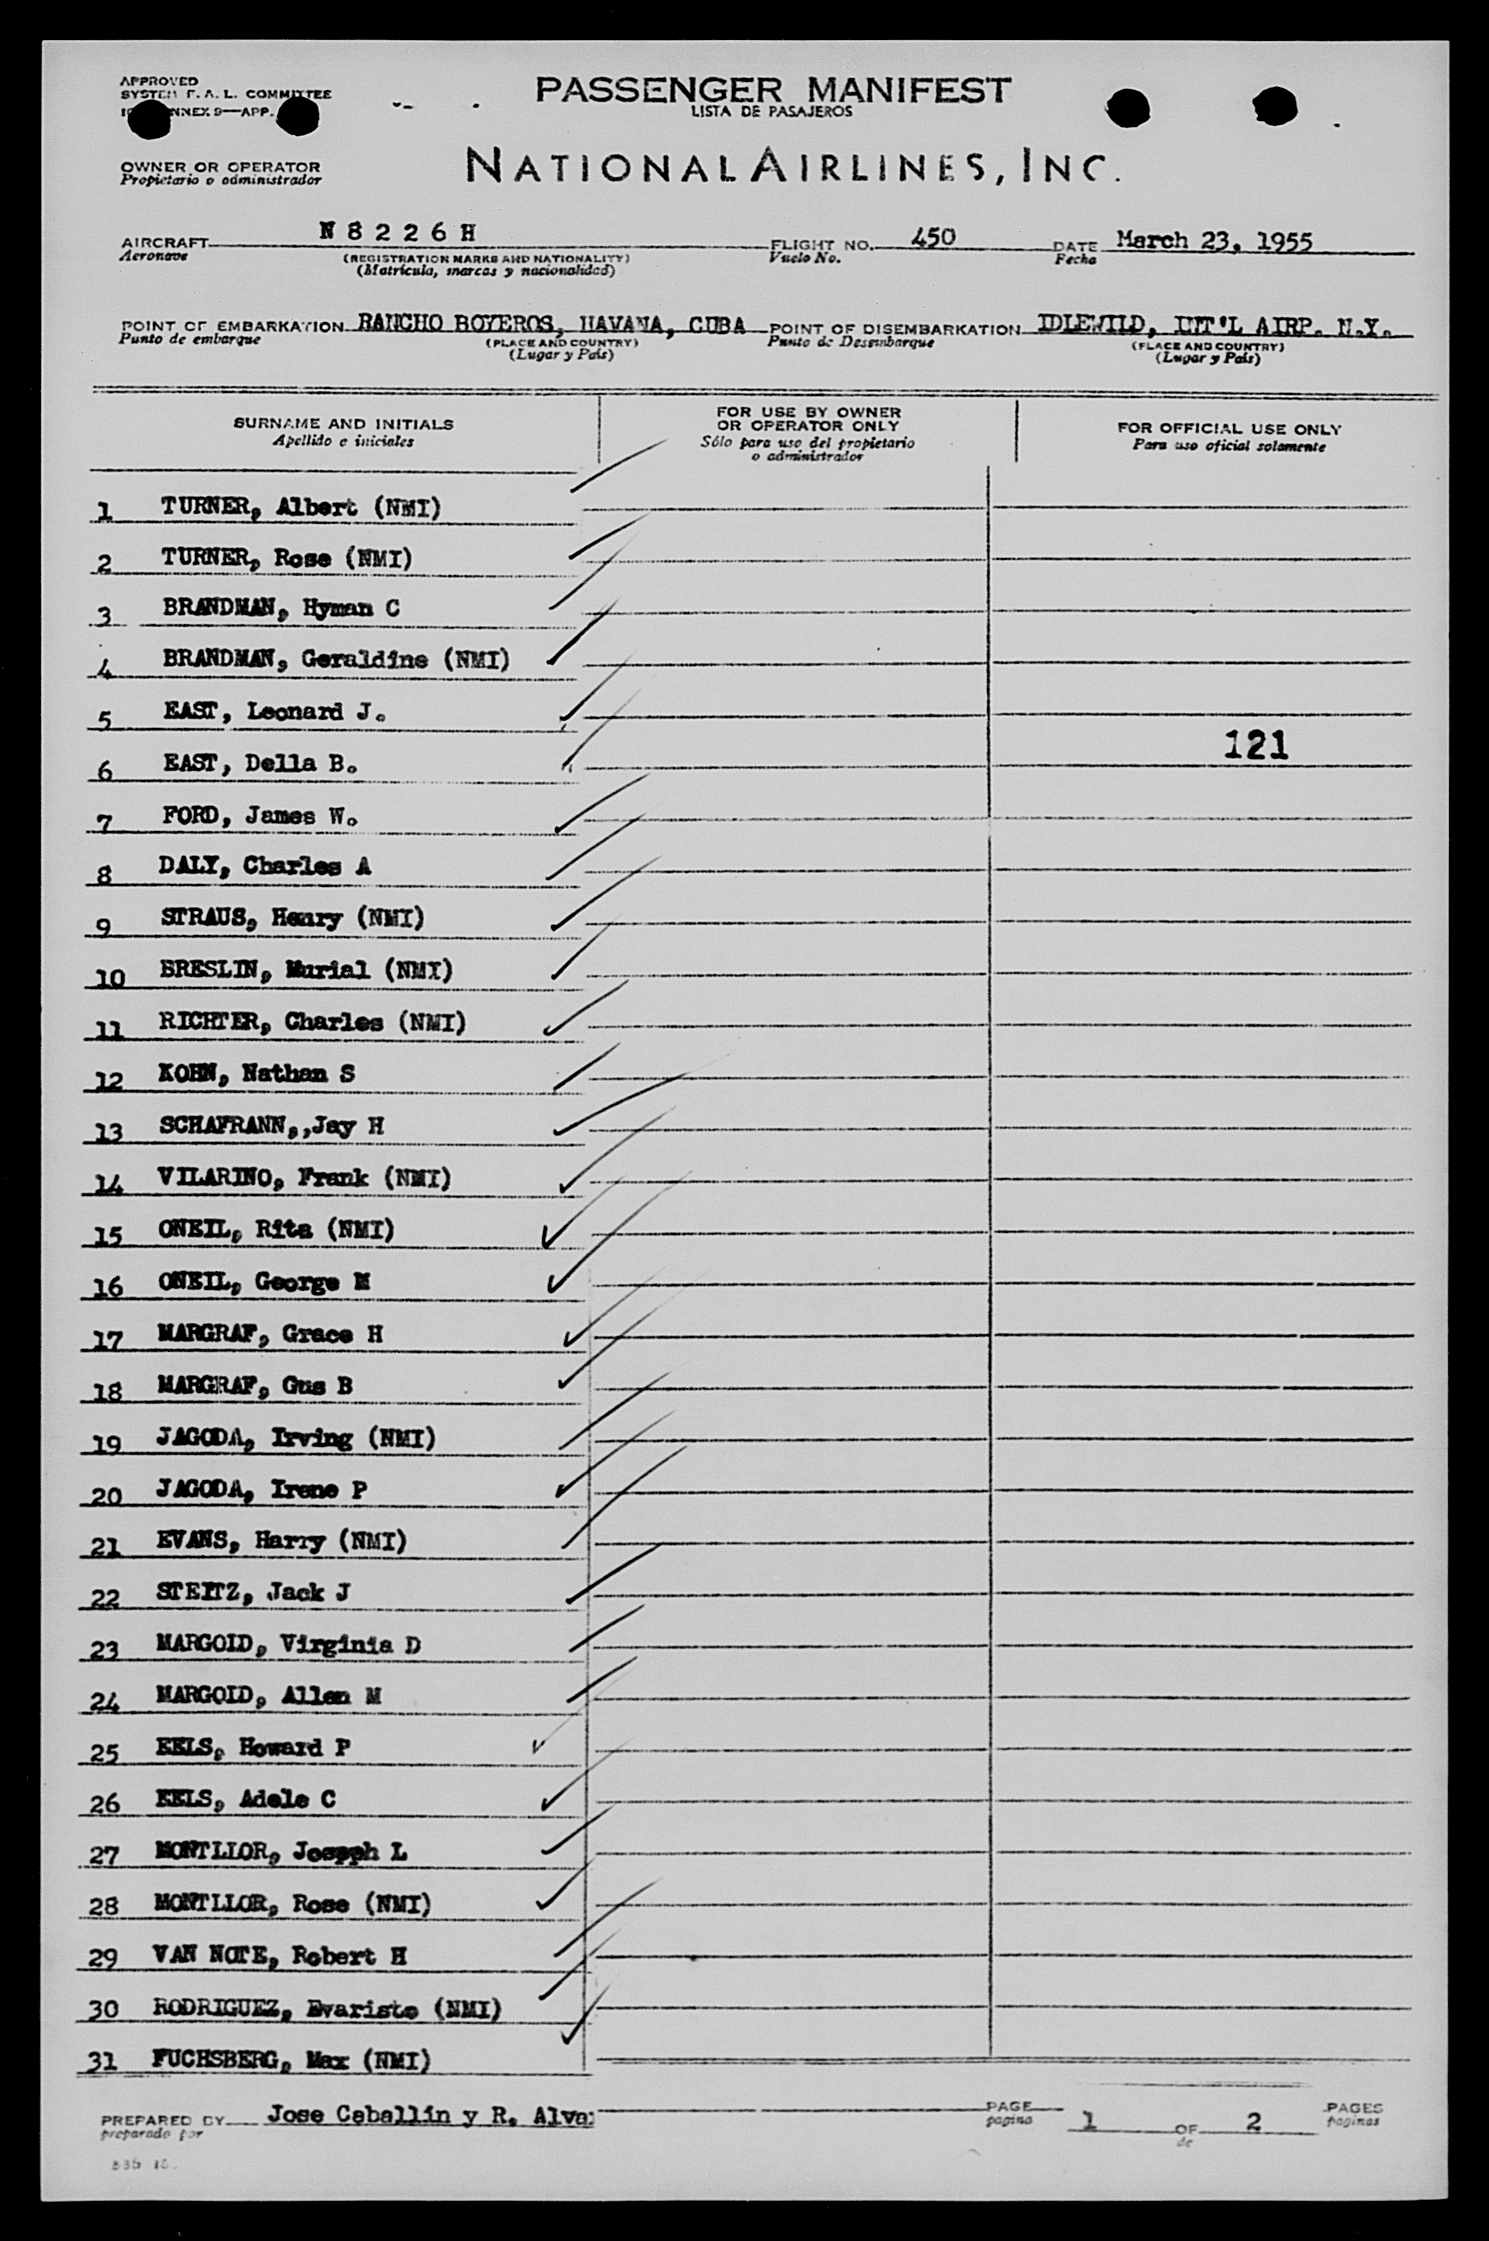 APPROVED
SYSTEM F. A. L. COMMITTEE
ANNEX 9—APP.
PASSENGER MANIFEST
LISTA DE PASAJEROS
OWNER OR OPERATOR
Propietario o administrador
NATIONAL AIRLINES, INC.
AIRCRAFT N 8 2 2 6 H FLIGHT NO. 450 DATE March 23, 1955
Aeronave (REGISTRATION MARKS AND NATIONALITY) Vuelo No. Fecha
(Matrícula, marcas y nacionalidad)
POINT OF EMBARKATION RANCHO BOYEROS, HAVANA, CUBA POINT OF DISEMBARKATION IDLEWILD, INT'L AIRP. N.Y.
Punto de embarque (PLACE AND COUNTRY) Punto de Desembarque (PLACE AND COUNTRY)
(Lugar y País) (Lugar y País)
SURNAME AND INITIALS
Apellido e iniciales
FOR USE BY OWNER
OR OPERATOR ONLY
Sólo para uso del propietario
o administrador
FOR OFFICIAL USE ONLY
Para uso oficial solamente
1 TURNER, Albert (NMI)
2 TURNER, Rose (NMI)
3 BRANDMAN, Hyman C
4 BRANDMAN, Geraldine (NMI)
5 EAST, Leonard J.
121
6 EAST, Della B.
7 FORD, James W.
8 DALY, Charles A
9 STRAUS, Henry (NMI)
10 BRESLIN, Murial (NMI)
11 RICHTER, Charles (NMI)
12 KOHN, Nathan S
13 SCHAFRANN,,Jay H
14 VILARINO, Frank (NMI)
15 ONEIL, Rita (NMI)
16 ONEIL, George M
17 MARGRAF, Grace H
18 MARGRAF, Gus B
19 JAGODA, Irving (NMI)
20 JAGODA, Irene P
21 EVANS, Harry (NMI)
22 STEITZ, Jack J
23 MARGOID, Virginia D
24 MARGOID, Allen M
25 EELS, Howard P
26 EELS, Adele C
27 MONTLLOR, Joseph L
28 MONTLLOR, Rose (NMI)
29 VAN NOTE, Robert H
30 RODRIGUEZ, Evaristo (NMI)
31 FUCHSBERG, Max (NMI)
PREPARED BY Jose Caballin y R. Alva
preparado por
PAGE 1 OF 2 PAGES
pagina de paginas